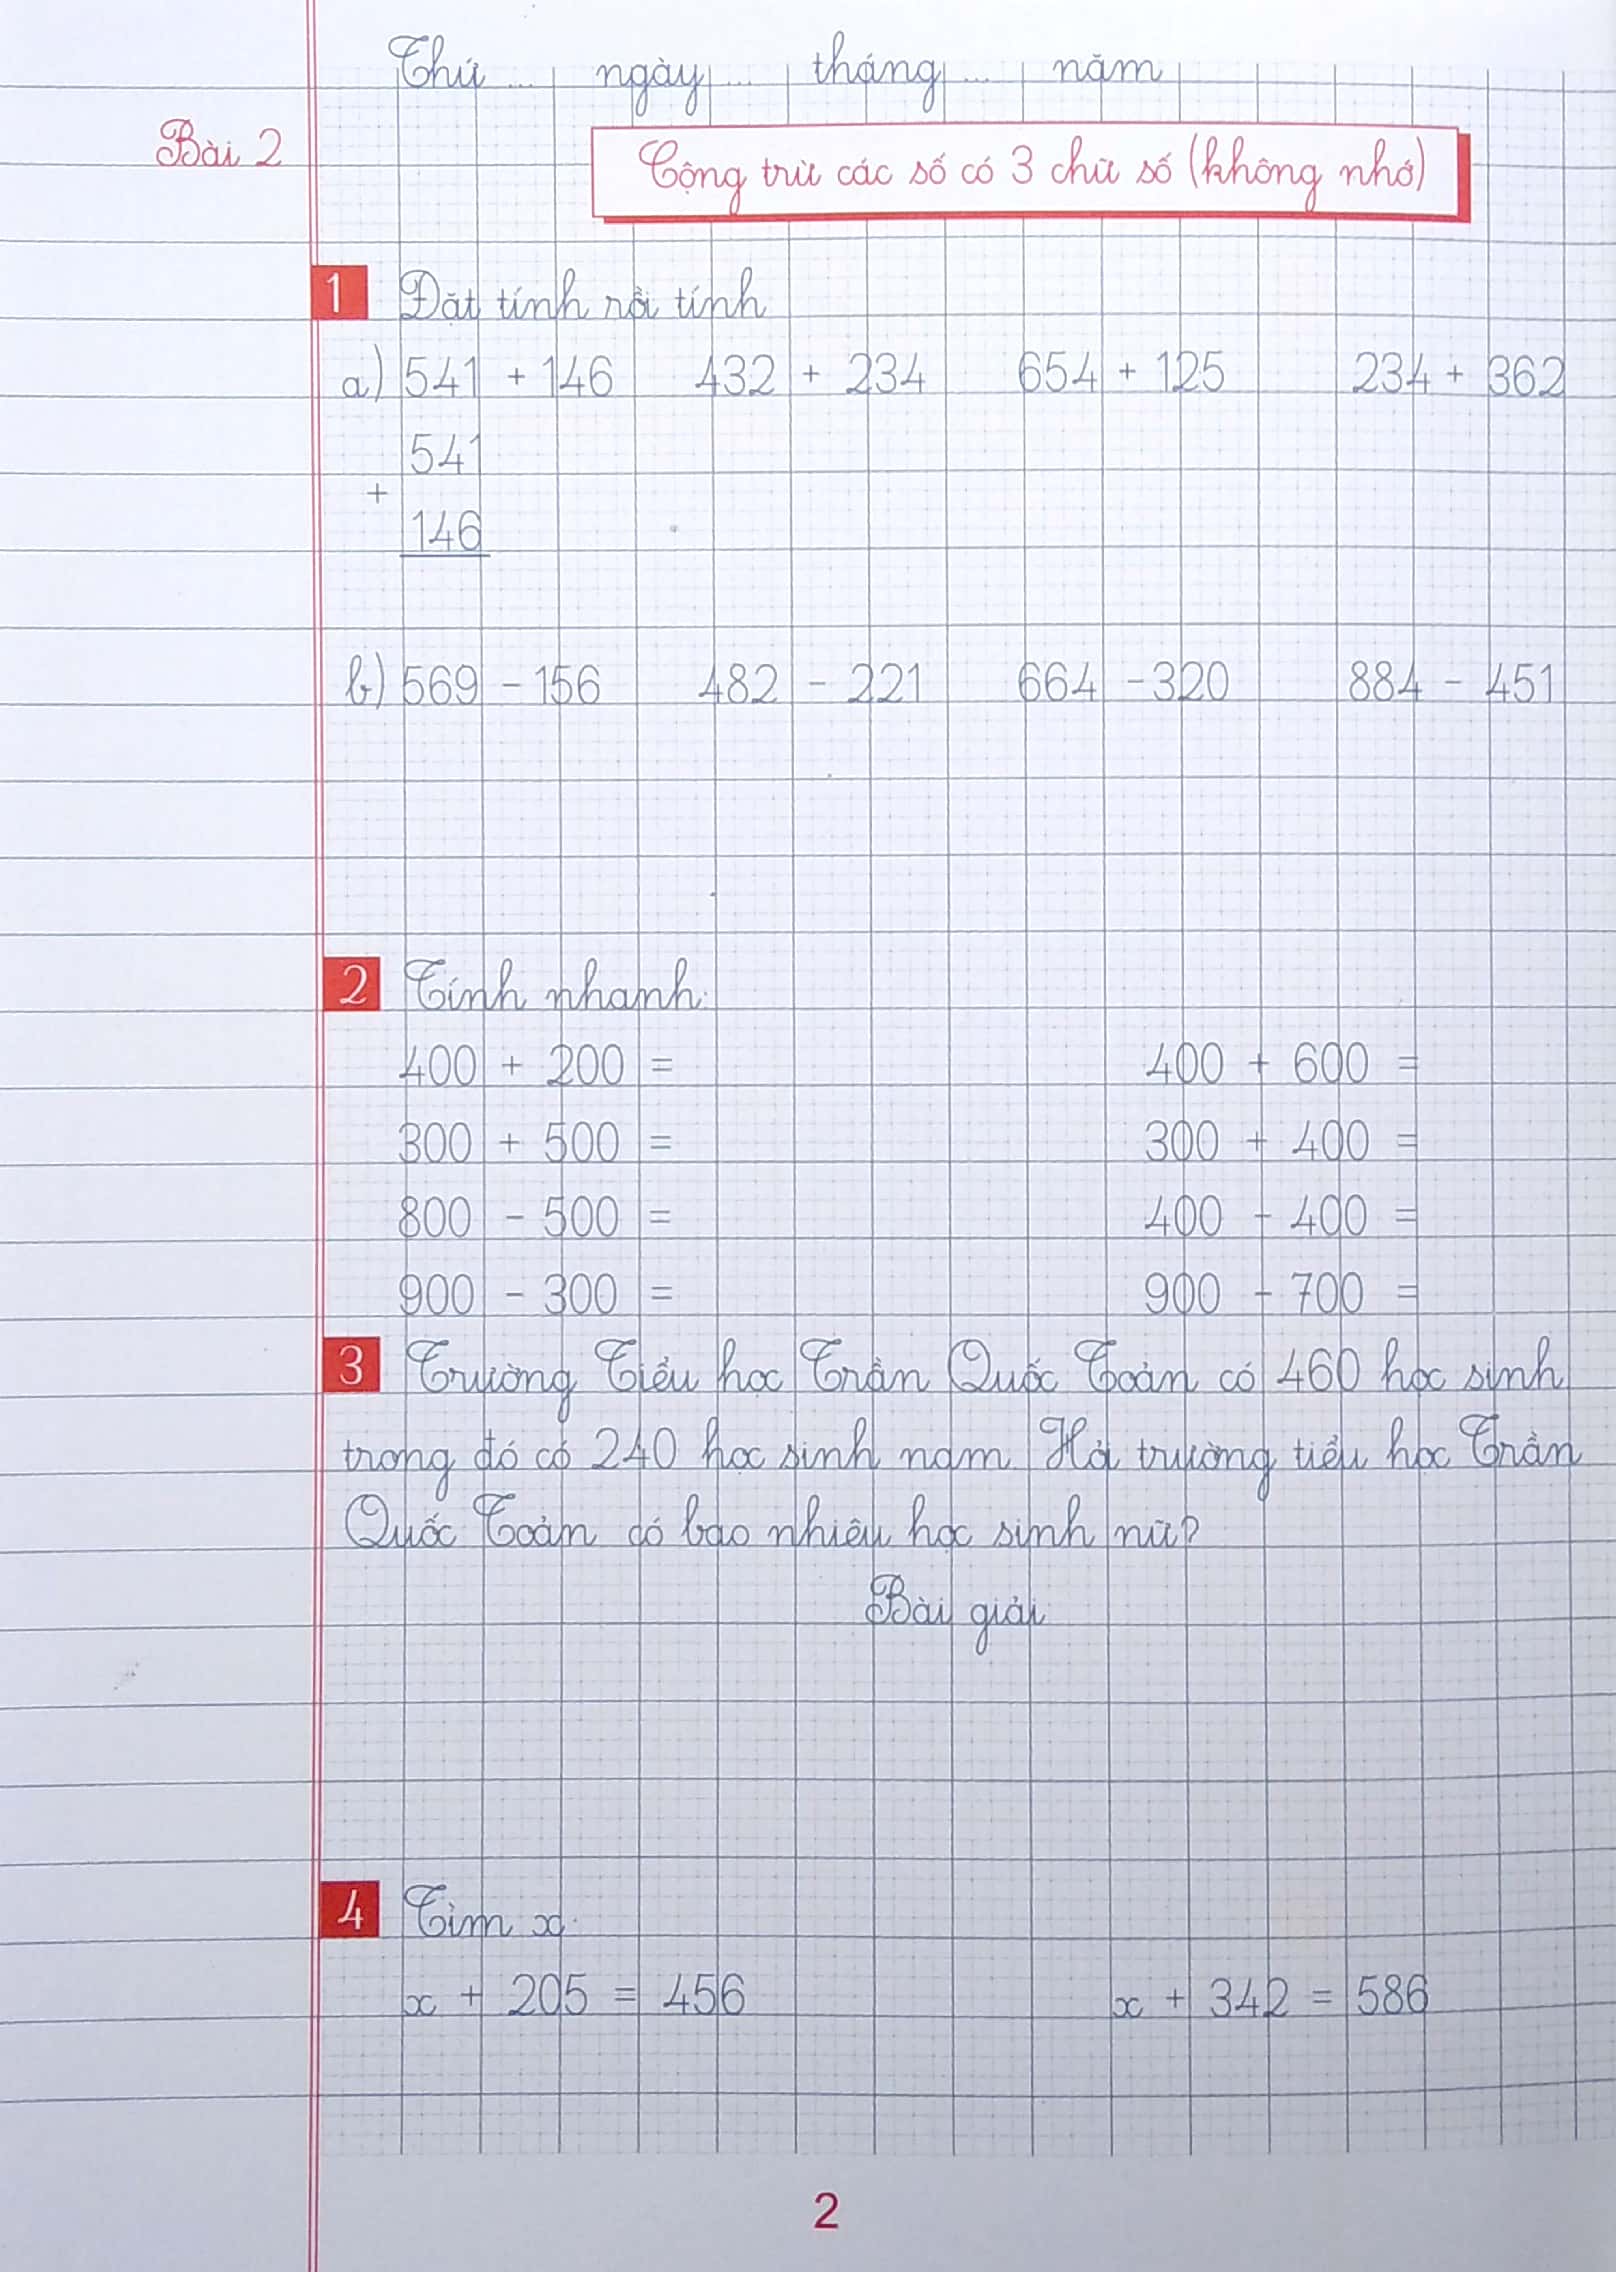 Thứ ... ngày ... tháng ... năm
Bài 2
Cộng trừ các số có 3 chữ số (không nhớ)
1 Đặt tính rồi tính
a) 541 + 146 432 + 234 654 + 125 234 + 362
541
+
146
b) 569 - 156 482 - 221 664 - 320 884 - 451
2 Tính nhanh:
400 + 200 = 400 + 600 =
300 + 500 = 300 + 400 =
800 - 500 = 400 - 400 =
900 - 300 = 900 - 700 =
3 Trường Tiểu học Trần Quốc Toản có 460 học sinh
trong đó có 240 học sinh nam. Hỏi trường tiểu học Trần
Quốc Toản có bao nhiêu học sinh nữ?
Bài giải
4 Tìm x:
x + 205 = 456 x + 342 = 586
2